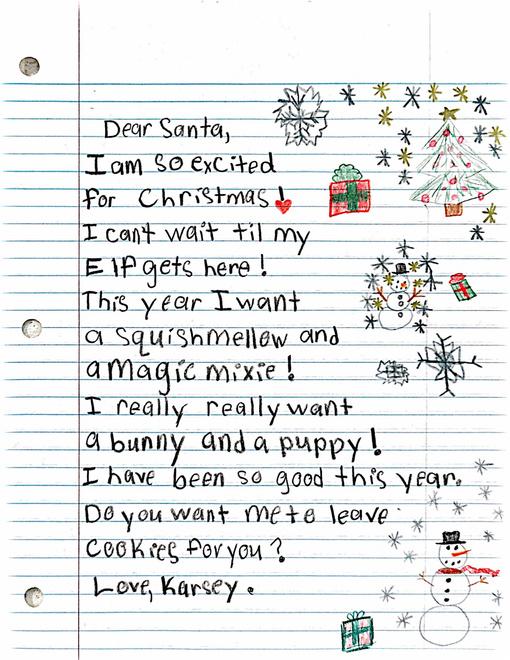 Dear Santa,
I am so excited
for Christmas!
I can't wait til my
ElP gets here!
This year I want
a squishmellow and
a magic mixie!
I really really want
a bunny and a puppy!
I have been so good this year.
Do you want me to leave
cookies for you?
Love, Karsey.